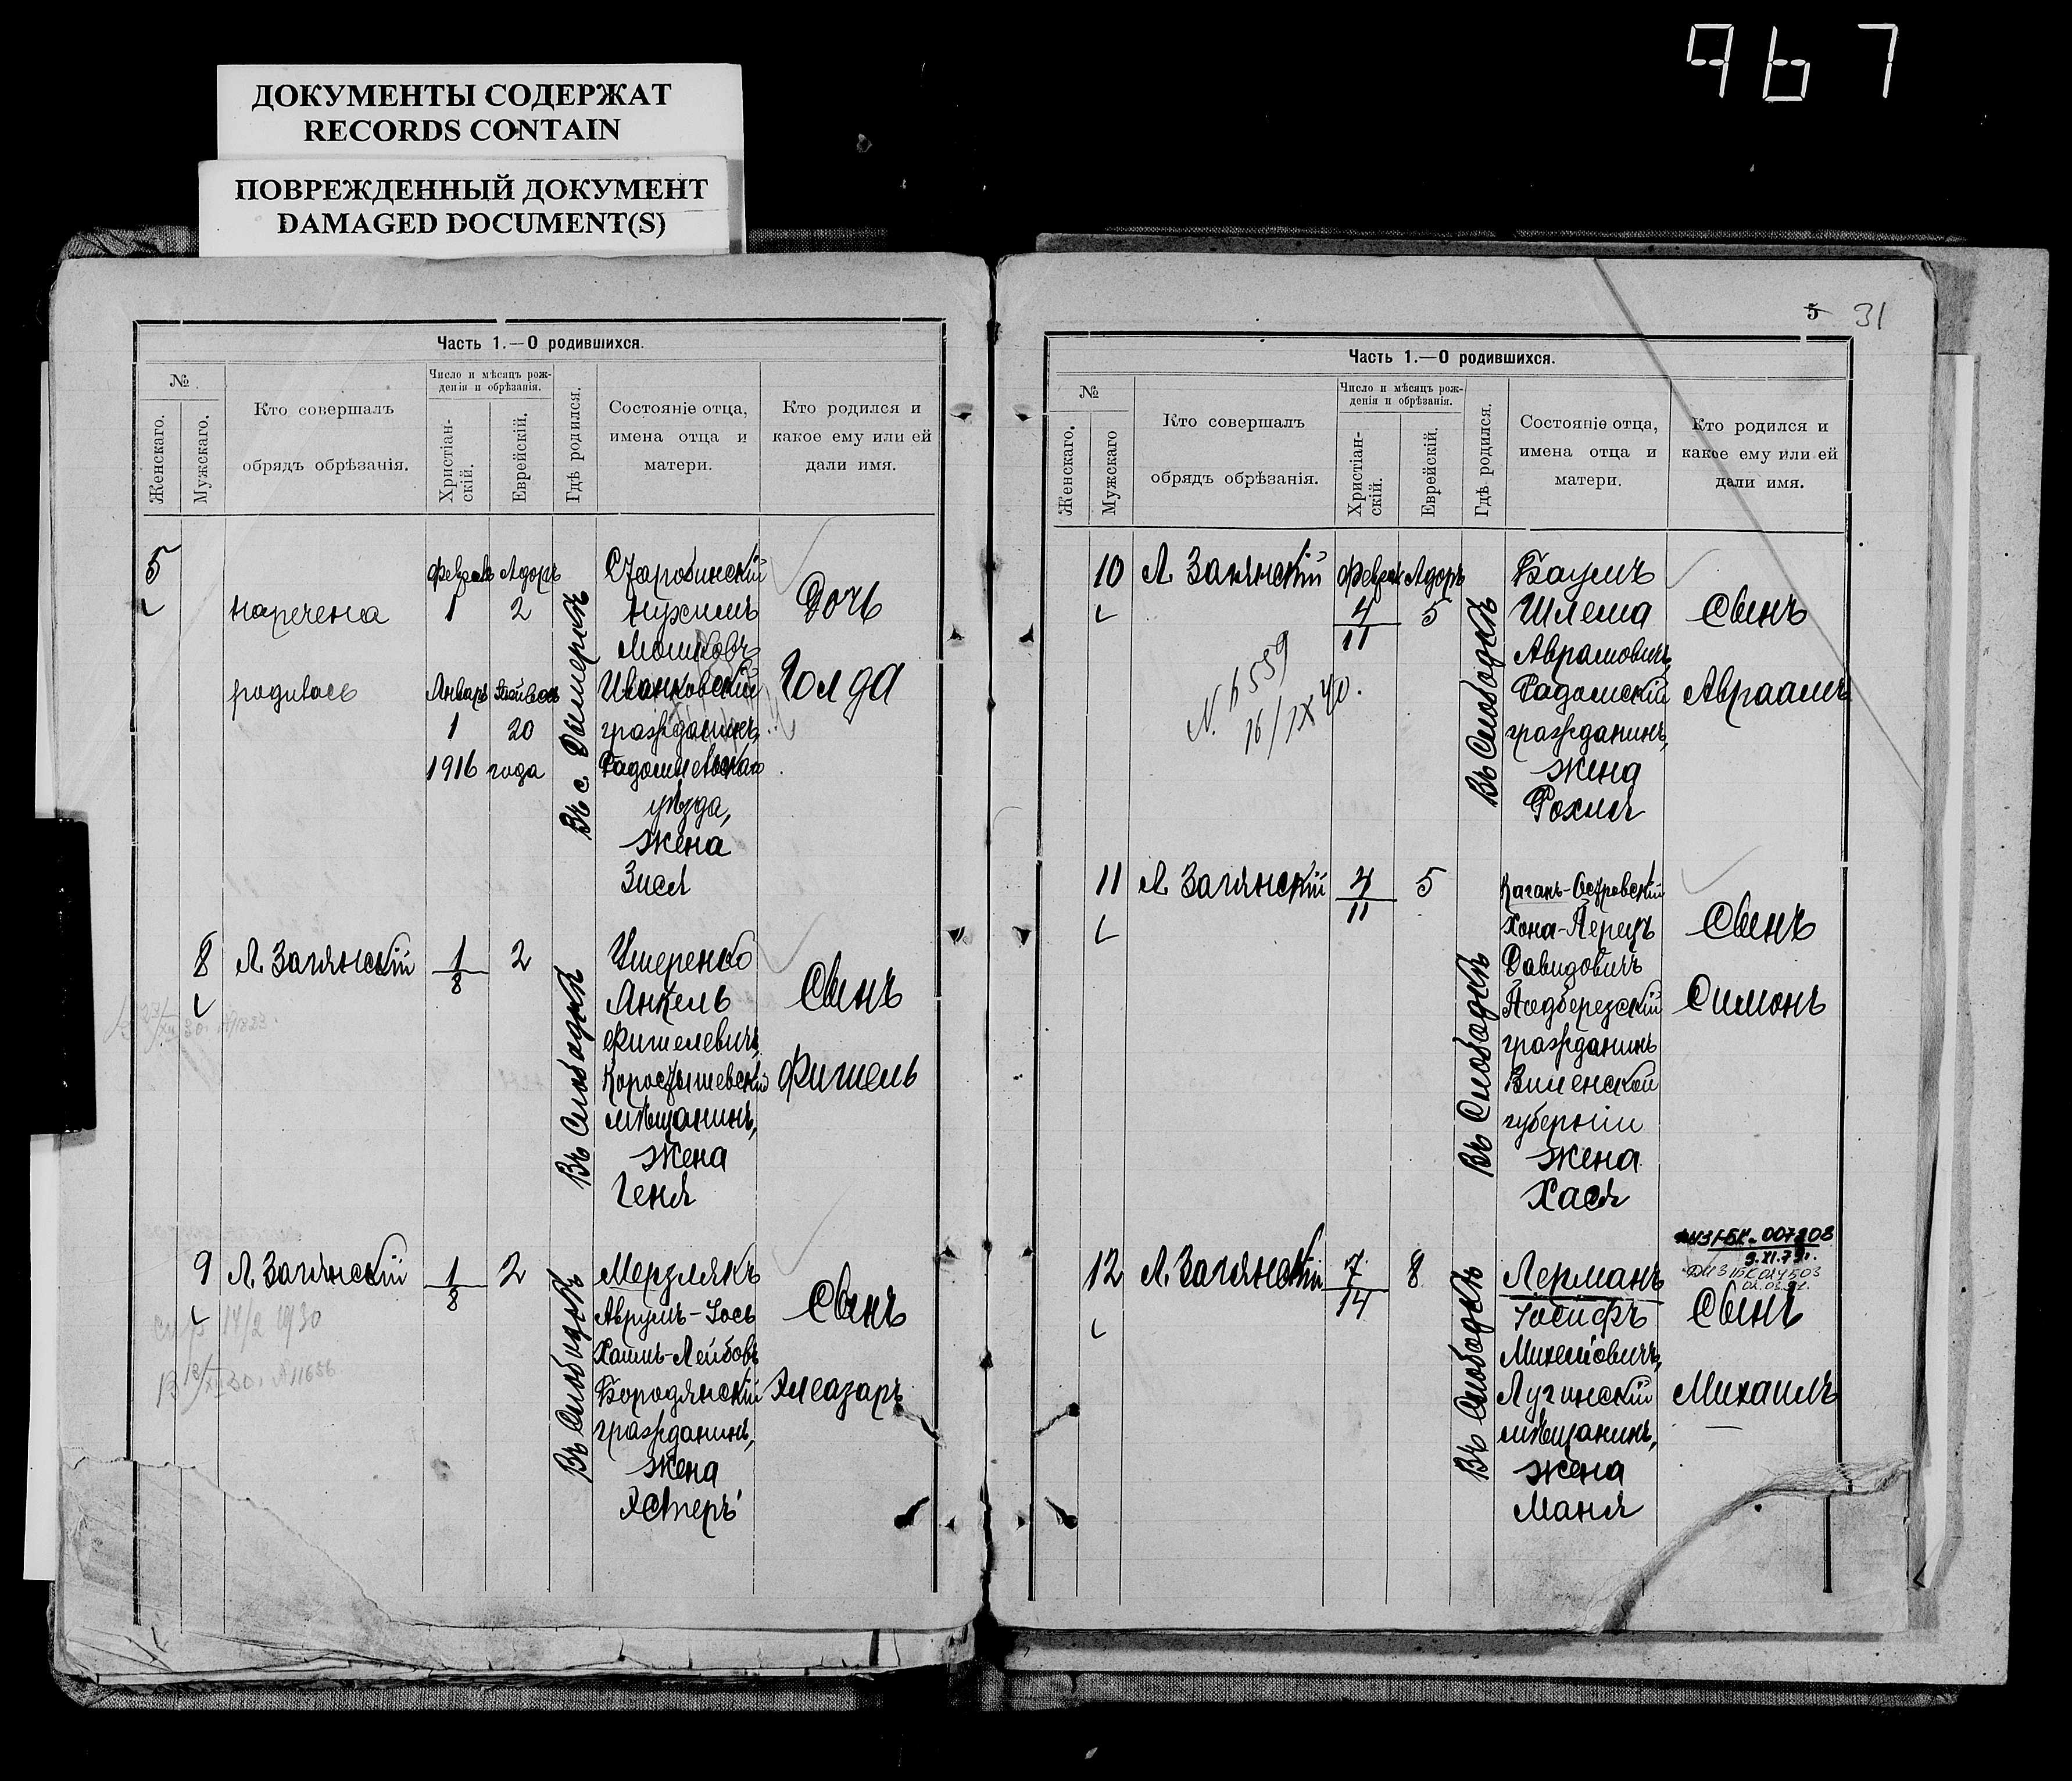 967
ДОКУМЕНТЫ СОДЕРЖАТ
RECORDS CONTAIN
ПОВРЕЖДЕННЫЙ ДОКУМЕНТ
DAMAGED DOCUMENT(S)
Часть 1.—О родившихся.
№
Женскаго.
Мужскаго.
Кто совершалъ
обрядъ обрѣзанія.
Число и мѣсяцъ рож-
денія и обрѣзанія.
Христіан-
скій.
Еврейскій.
Гдѣ родился.
Состояніе отца,
имена отца и
матери.
Кто родился и
какое ему или ей
дали имя.
5
наречена
родилась
Февраль Адоръ
1 2
Январь
1 20
1916 года
Въ с. Дымеркѣ
Старобинский
Нухимъ
Мошковъ
Иванковскій
гражданинъ,
уѣзда,
жена
Зися
Дочь
Голда
8
Л. Загянскій
1/8
2
Въ Слободкѣ
Ушеренко
Анкель
Фишелевичъ,
Коростышевскій
мѣщанинъ,
жена
Геня
Сынъ
Фишель
9
Л. Загянскій
1/8
2
14/2 1930
Въ Слободкѣ
Мерзлякъ
Аврумъ-Іось
Хаимъ-Лейбовъ
Бородянскій
гражданинъ,
жена
Эстеръ
Сынъ
Элеазаръ
5 31
Часть 1.—О родившихся.
№
Женскаго.
Мужскаго
Кто совершалъ
обрядъ обрѣзанія.
Число и мѣсяцъ рож-
денія и обрѣзанія.
Христіан-
скій.
Еврейскій.
Гдѣ родился.
Состояніе отца,
имена отца и
матери.
Кто родился и
какое ему или ей
дали имя.
10
Л. Загянскій
Феврал Адоръ
4/11
5
16/IX 40.
Въ Слободкѣ
Баумъ
Шлема
Аврамовичъ,
Радомскій
гражданинъ,
жена
Рохля
Сынъ
Авраамъ
11
Л. Загянскій
4/11
5
Въ Слободкѣ
Каганъ-Островскій
Хона-Перецъ
Давидовичъ
Подберезскій
гражданинъ
Виленской
губерніи
жена
Хася
Сынъ
Симонъ
12
Л. Загянскій
7/14
8
Въ Слободкѣ
Лерманъ
Іосифъ
Михелевичъ,
Лугинскій
мѣщанинъ,
жена
Маня
Сынъ
Михаилъ